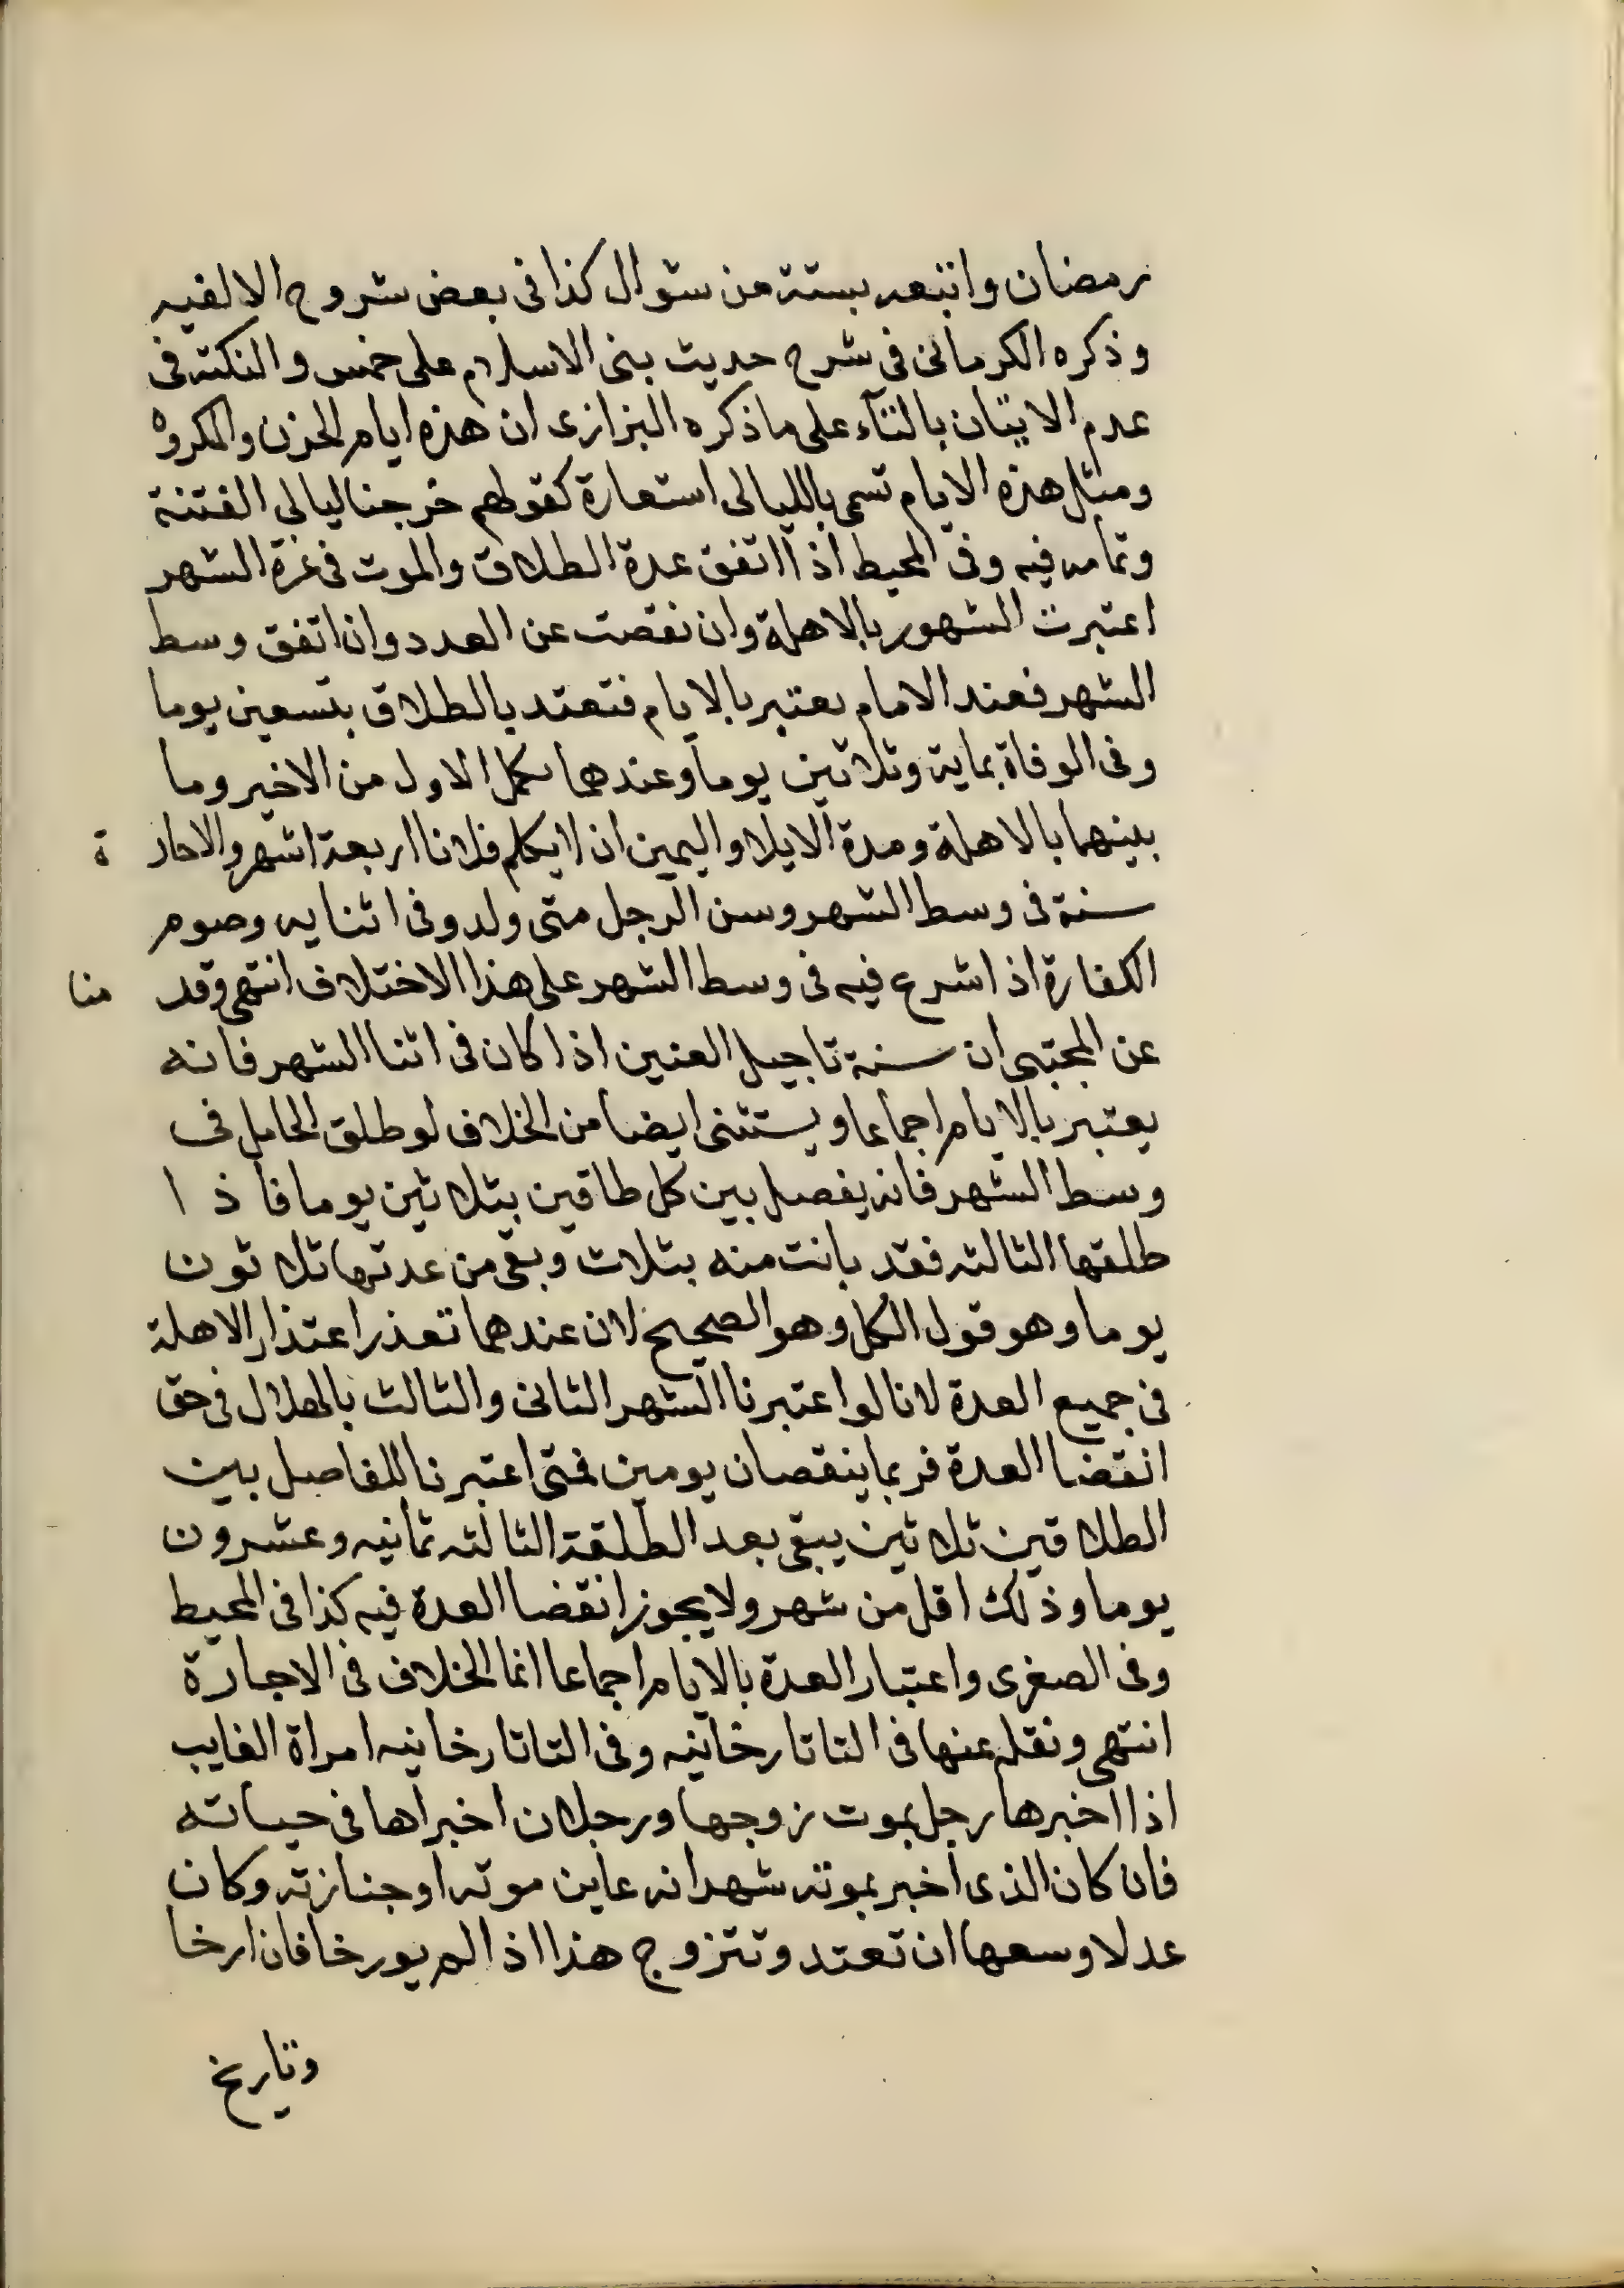 رمضان واتبعه بستة من شوال كذا فى بعض شروح الالفيه
وذكره الكرمانى فى شرح حديث بنى الاسلام على خمس والنكتة فى
عدم الاتيان بالتآء على ما ذكره البزازى ان هذه ايام الحزن والمكروه
ومثل هذه الايام تسمى بالليالى استعارة كقولهم خرجنا ليالى الفتنة
وتمامه فيه وفى المحيط اذا اتفق عدة الطلاق والموت فى غرة الشهر
اعتبرت الشهور بالاهلة وان نقصت عن العدد وان اتفق وسط
الشهر فعند الامام يعتبر بالايام فتعتد بالطلاق بتسعين يوما
وفى الوفاة بماية وثلاثين يوما وعندهما يكمل الاول من الاخير وما
بينهما بالاهلة ومدة الايلا واليمين ان لا يكلم فلانا اربعة اشهر والاجارة
سنة فى وسط الشهر وسن الرجل متى ولد وفى اثنايه وصوم
الكفارة اذا شرع فيه فى وسط الشهر على هذا الاختلاف انتهى وقدمنا
عن المجتبى ان سنة تاجيل العنين اذا كان فى اثنا الشهر فانه
يعتبر بالايام اجماعا ويستثنى ايضا من الخلاف لو طلق الحامل فى
وسط الشهر فانه يفصل بين كل طلاقين بثلاثين يوما فاذا
طلقها الثالثه فقد بانت منه بثلاث وبقى من عدتها ثلاثون
يوما وهو قول الكل وهو الصحيح لان عندهما تعذر اعتذار الاهلة
فى جميع العدة لانا لو اعتبرنا الشهر الثانى والثالث بالهلال فى حق
انقضا العدة فربما ينقصان يومين فمتى اعتبرنا للفاصل بين
الطلاقين ثلاثين يبقى بعد الطلقة الثالثه ثمانيه وعشرون
يوما وذلك اقل من شهر ولا يجوز انقضا العدة فيه كذا فى المحيط
وفى الصغرى واعتبار العدة بالايام اجماعا انما الخلاف فى الاجارة
انتهى ونقله عنها فى التاتارخانيه وفى التاتارخانيه امراة الغايب
اذا اخبرها رجل بموت زوجها ورجلان اخبراها فى حياته
فان كان الذى اخبر بموته شهد انه عاين موته او جنازته وكان
عدلا وسعها ان تعتد وتتزوج هذا اذا لم يورخا فان ارخا
وتاريخ